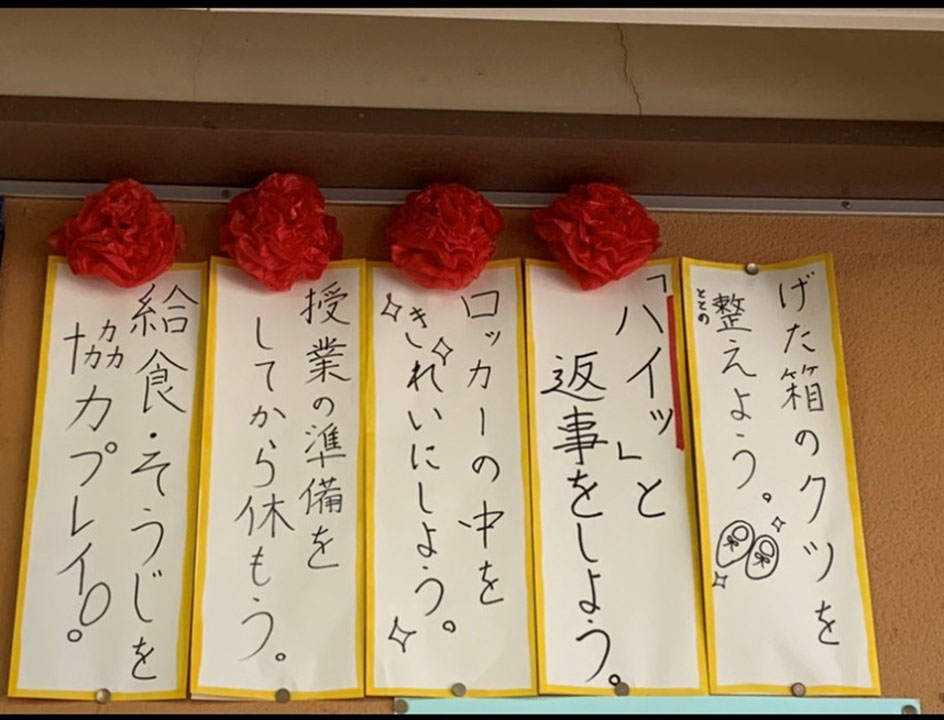 げた箱のクツを
整えよう。
ととの
「ハイッ」と
返事をしよう。
ロッカーの中を
きれいにしよう。
授業の準備を
してから休もう。
給食・そうじを
協力プレイ!。